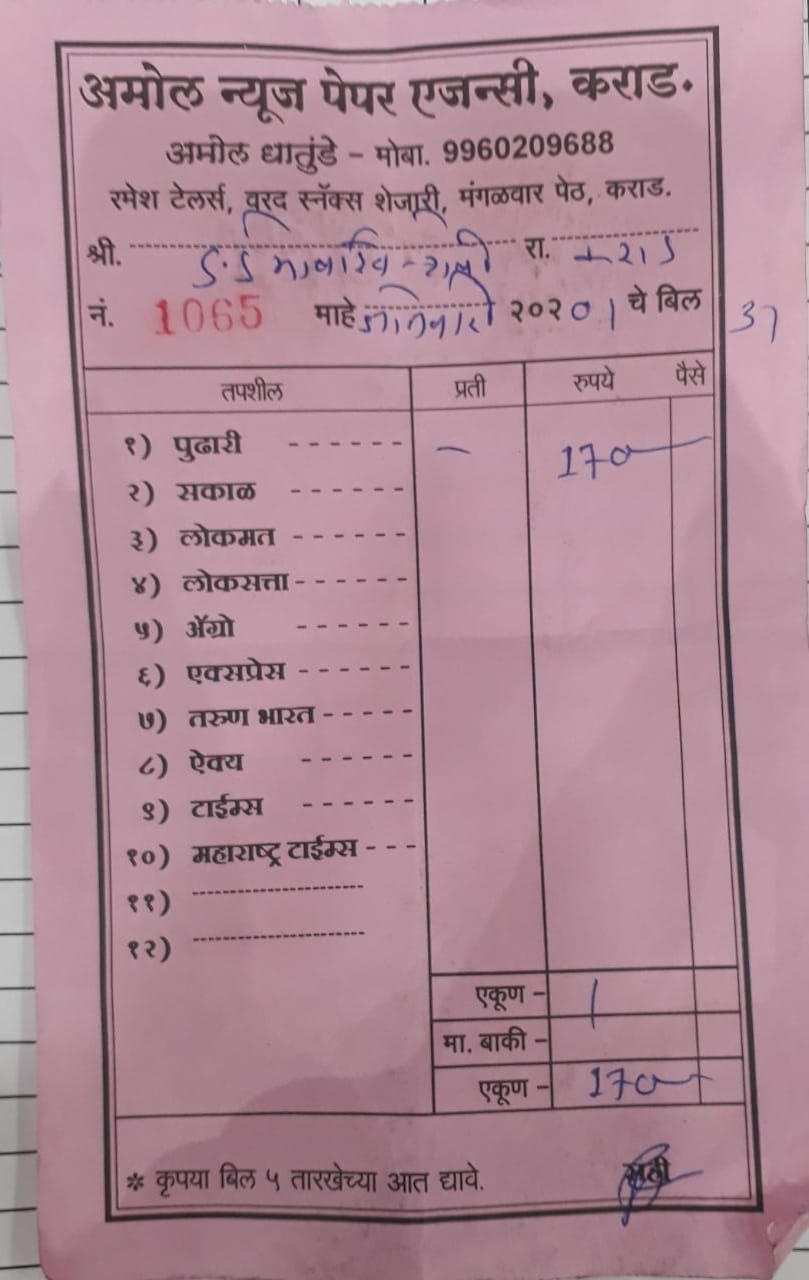 अमोल न्यूज पेपर एजन्सी, कराड.
अमोल धातुंडे - मोबा. 9960209688
रमेश टेलर्स, वरद स्नॅक्स शेजारी, मंगळवार पेठ, कराड.
श्री. रा. कराड
नं. 1065 माहे २०२० चे बिल
तपशील प्रती रुपये पैसे
१) पुढारी - - - - - - - 170
२) सकाळ - - - - - -
३) लोकमत - - - - - -
४) लोकसत्ता - - - - - -
५) ॲग्रो - - - - - -
६) एक्सप्रेस - - - - - -
७) तरुण भारत - - - - -
८) ऐक्य - - - - - -
९) टाईम्स - - - - - -
१०) महाराष्ट्र टाईम्स - - -
११)
१२)
एकूण -
मा. बाकी -
एकूण - 170
* कृपया बिल ५ तारखेच्या आत द्यावे. सही